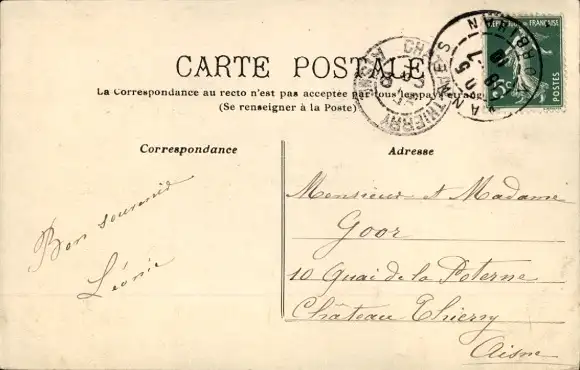 CARTE POSTALE
La Correspondance au recto n'est pas acceptée par tous les pays étrangers
(Se renseigner à la Poste)
REPUBLIQUE FRANÇAISE
5c
POSTES
VANNES
MORBIHAN
CHATEAU-THIERRY
AISNE
Correspondance
Adresse
Bon souvenir
Léonie
Monsieur et Madame
Goor
10 Quai de la Poterne
Château Thierry
Aisne